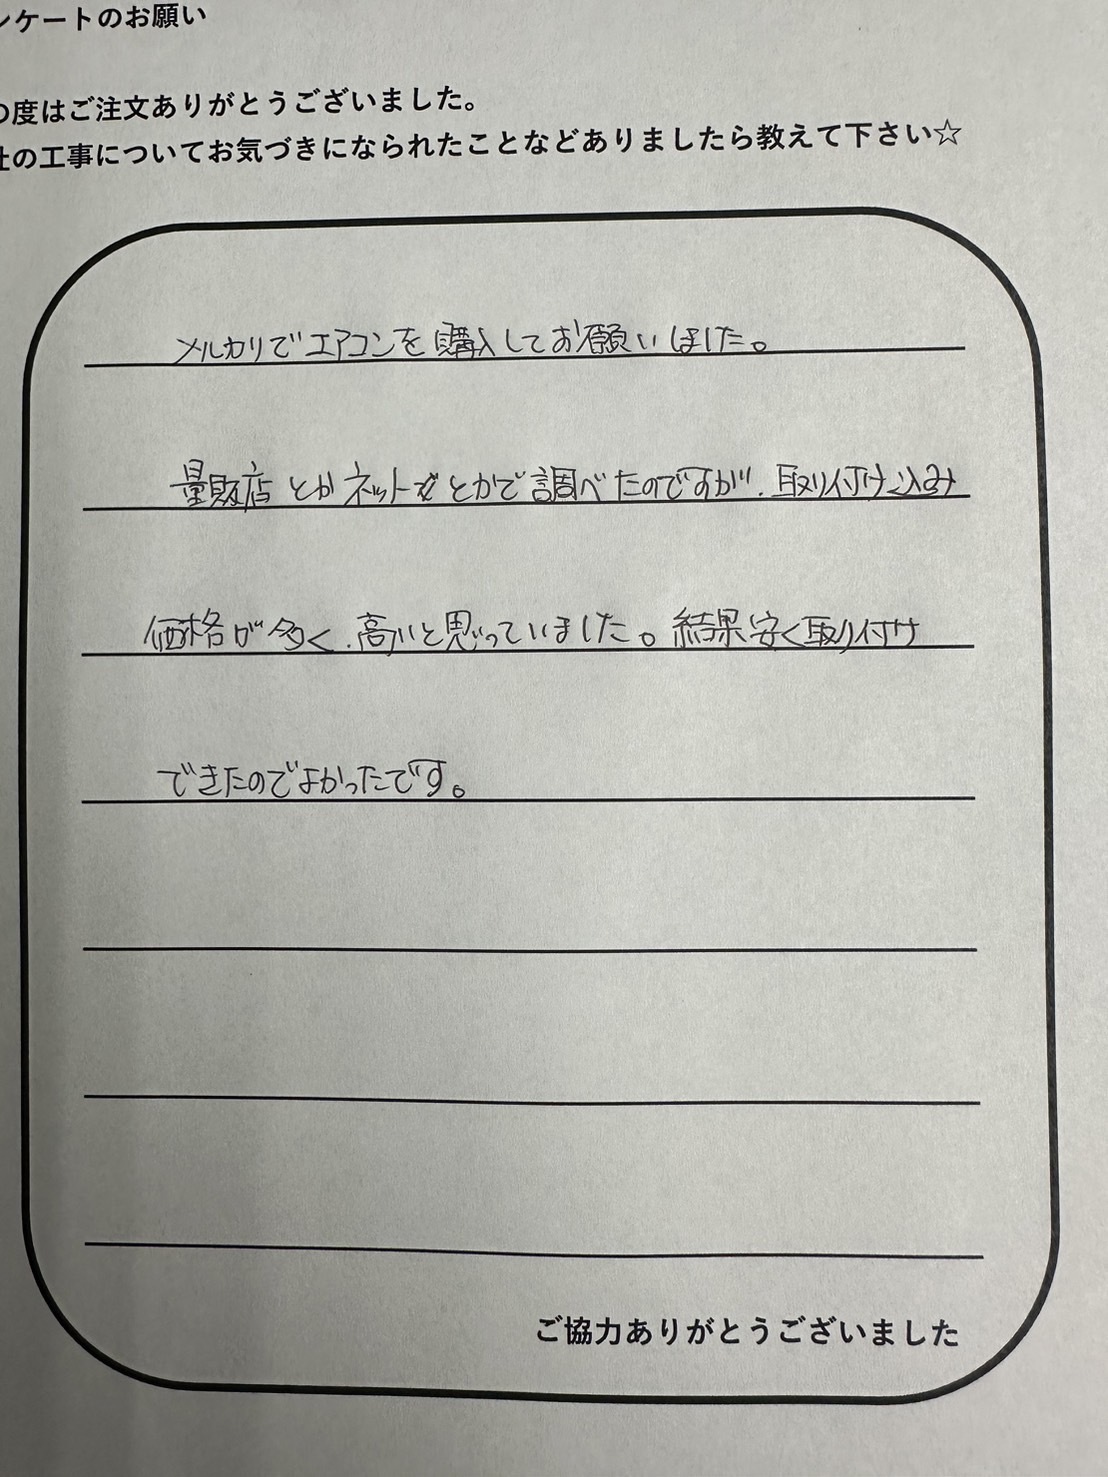 ンケートのお願い
の度はご注文ありがとうございました。
社の工事についてお気づきになられたことなどありましたら教えて下さい☆
メルカリでエアコンを購入してお願いしました。
量販店とかネットとかで調べたのですが、取り付け込み
価格が多く、高いと思っていました。結果安く取り付け
できたのでよかったです。
ご協力ありがとうございました